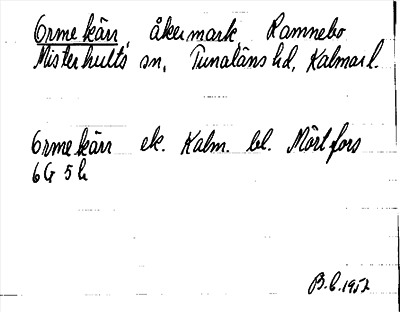 Ormekärr, åkermark, Ramnebo
Misterhults sn, Tunaläns hd, Kalmar l.
Ormekärr ek. Kalm. bl. Mörtfors
6G 5h
B.E. 1952